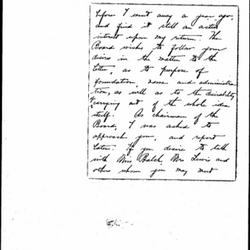 before I went away a year ago,
and find it still a active
interest upon my return. The
Board wishes to follow your
desires in the matter to the
letter, as to purpose of
foundation, name and administra-
tion, as well as to the advisability
of carrying out of the whole idea
itself. As chairman of the
Board, I was asked to
approach you, and report
later. If you desire to talk
with Mrs Balch, Mrs Lewis and
others whom you may meet